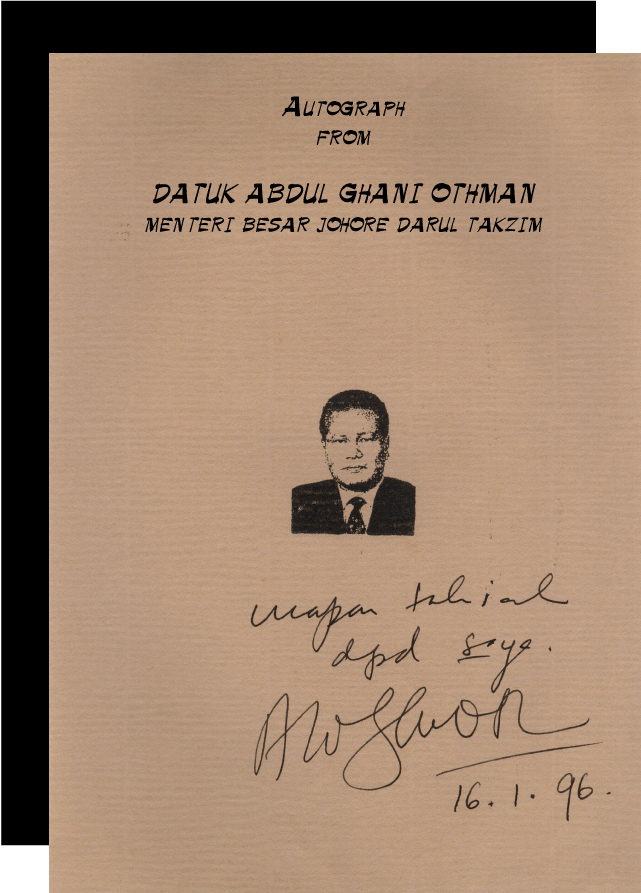 AUTOGRAPH
FROM
DATUK ABDUL GHANI OTHMAN
MENTERI BESAR JOHORE DARUL TAKZIM
ucapan tahniah
dpd saya.
16.1.96.